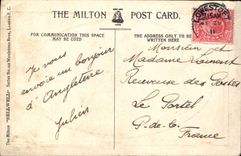 THE MILTON POST CARD.
FOR COMMUNICATION THIS SPACE
MAY BE USED
THE ADDRESS ONLY TO BE
WRITTEN HERE
Je vous
envoie un bonjour
d'Angleterre
Julien
Monsieur et
Madame
Receveuse des Postes
Le Portel
P.-de-C.
France
The Milton "BROMWELL" Series
London E.C.